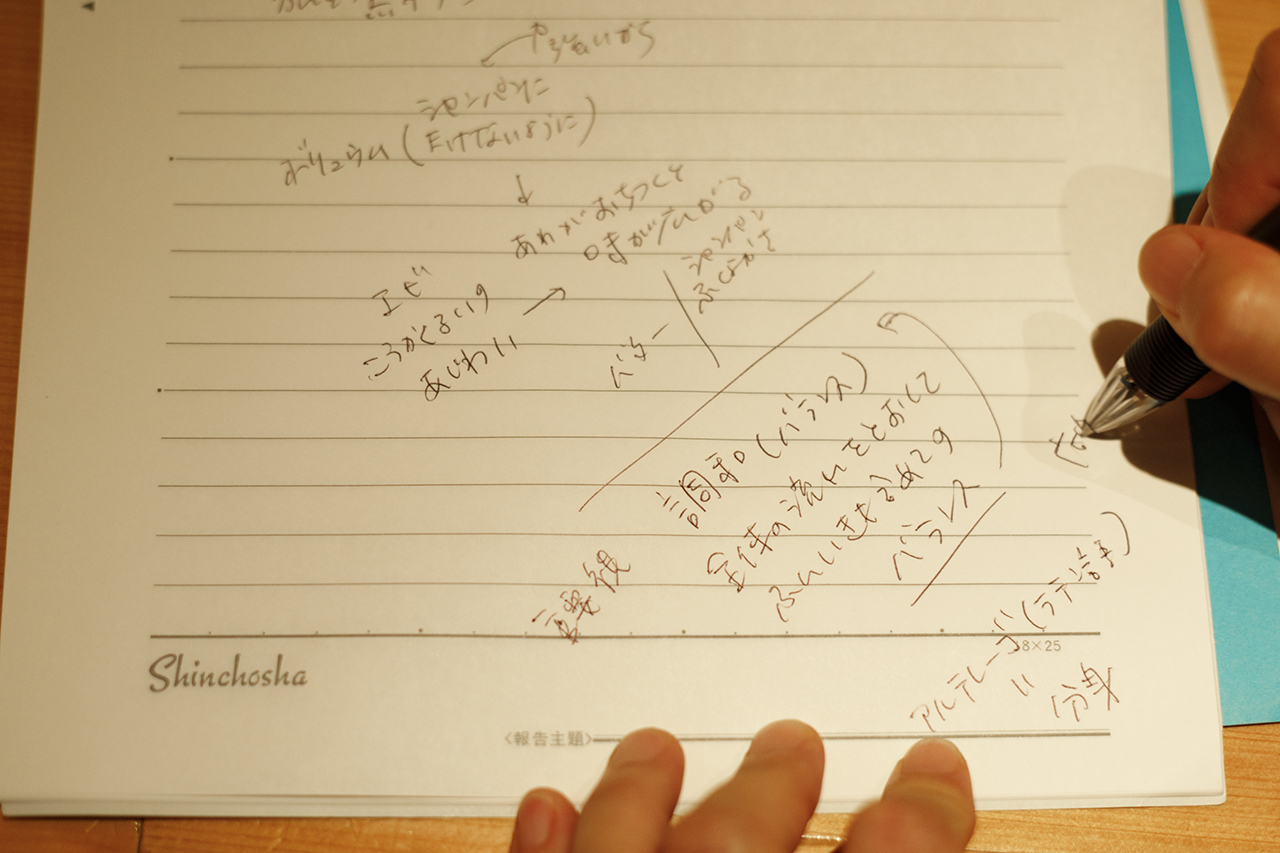 ボリュウム(シャンパンに
まけないように)
↓
あわがおちつくと
味が広がる
エビ
こうかくるいの
あじわい →
バター
シャンパン
調和(バランス)
全体の流れをとおして
ふんいきせるあての
バランス
アルテレーゴ(ラテン語)
〃
分身
Shinchosha
18×25
〈報告主題〉